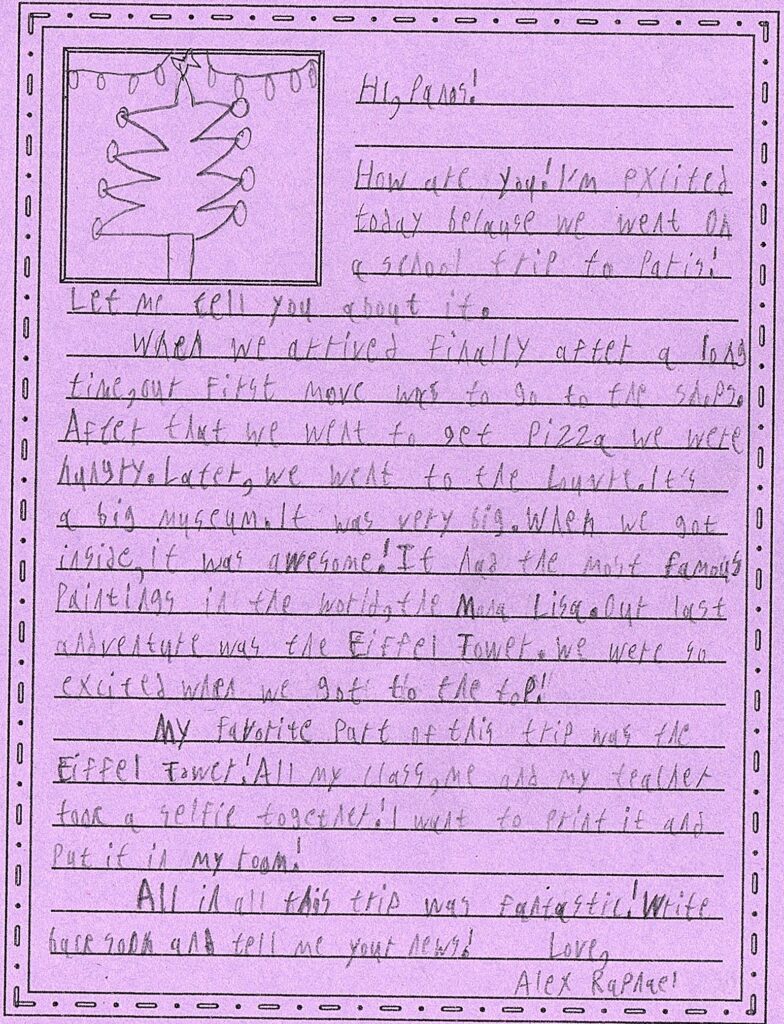 Hi, Panos!
How are you! I'm excited
today because we went on
a school trip to Paris!
Let me tell you about it.
When we arrived finally after a long
time, our first move was to go to the shops.
After that we went to get pizza we were
hungry. Later, we went to the Louvre. It's
a big museum. It was very big. When we got
inside, it was awesome! It had the most famous
Paintings in the world, the Mona Lisa. Our last
adventure was the Eiffel Tower. We were so
excited when we got to the top!
My favorite part of this trip was the
Eiffel Tower! All my class, me and my teacher
took a selfie together! I want to print it and
put it in my room!
All in all this trip was fantastic! Write
back soon and tell me your news! Love,
Alex Raphael